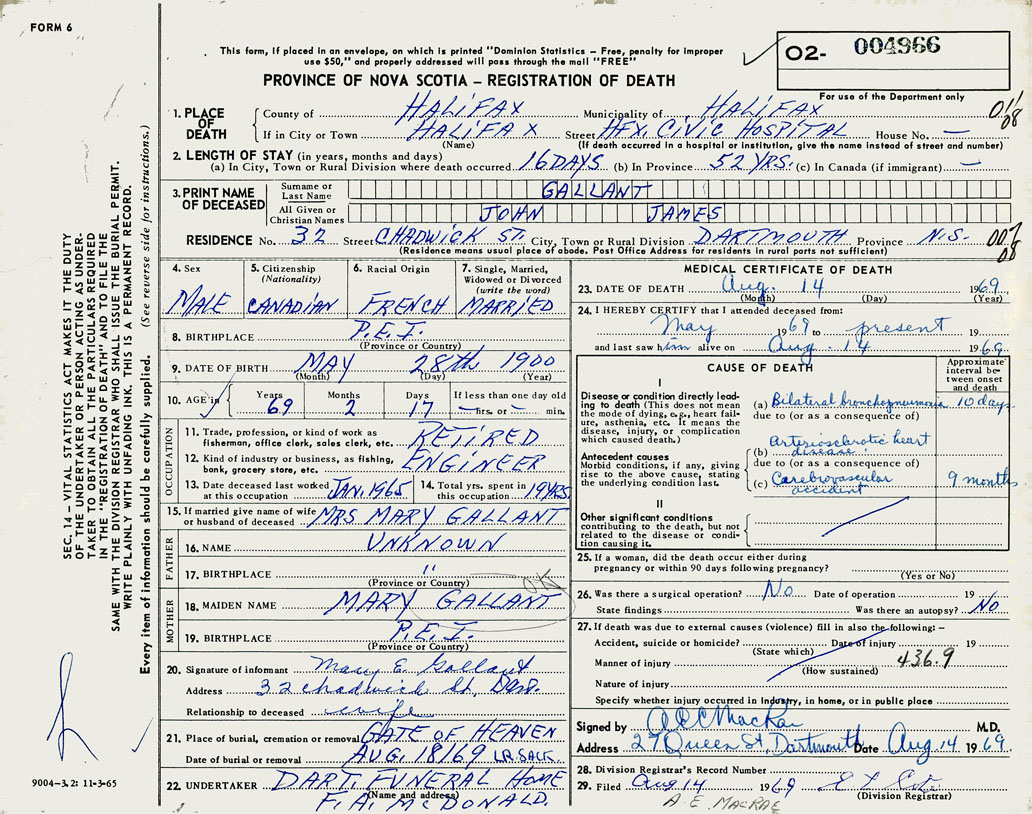 FORM 6
This form, if placed in an envelope, on which is printed "Dominion Statistics – Free, penalty for improper
use $50," and properly addressed will pass through the mail "FREE"
PROVINCE OF NOVA SCOTIA – REGISTRATION OF DEATH
O2- 004966
For use of the Department only
1. PLACE OF DEATH County of HALIFAX Municipality of HALIFAX
If in City or Town HALIFAX Street HFX. CIVIC HOSPITAL House No. —
(Name) (If death occurred in a hospital or institution, give the name instead of street and number)
2. LENGTH OF STAY (in years, months and days)
(a) In City, Town or Rural Division where death occurred 16 DAYS (b) In Province 52 YRS. (c) In Canada (if immigrant) —
3. PRINT NAME OF DECEASED Surname or Last Name GALLANT
All Given or Christian Names JOHN JAMES
RESIDENCE No. 32 Street CHADWICK ST. City, Town or Rural Division DARTMOUTH Province N.S.
(Residence means usual place of abode. Post Office Address for residents in rural parts not sufficient)
4. Sex MALE
5. Citizenship (Nationality) CANADIAN
6. Racial Origin FRENCH
7. Single, Married, Widowed or Divorced (write the word) MARRIED
8. BIRTHPLACE P.E.I.
(Province or Country)
9. DATE OF BIRTH MAY 28th 1900
(Month) (Day) (Year)
10. AGE in Years 69 Months 2 Days 17 If less than one day old — hrs. or — min.
OCCUPATION
11. Trade, profession, or kind of work as fisherman, office clerk, sales clerk, etc. RETIRED
12. Kind of industry or business, as fishing, bank, grocery store, etc. ENGINEER
13. Date deceased last worked at this occupation JAN. 1965
14. Total yrs. spent in this occupation 19 YRS.
15. If married give name of wife or husband of deceased MRS MARY GALLANT
FATHER
16. NAME UNKNOWN
17. BIRTHPLACE "
(Province or Country)
OK
MOTHER
18. MAIDEN NAME MARY GALLANT
19. BIRTHPLACE P.E.I.
(Province or Country)
20. Signature of informant Mary E Gallant
Address 32 chadwick St, Dart.
Relationship to deceased wife
21. Place of burial, cremation or removal GATE OF HEAVEN
Date of burial or removal AUG. 18/69 LR. SACK.
22. UNDERTAKER DART. FUNERAL HOME
(Name and address)
F. A. McDONALD.
MEDICAL CERTIFICATE OF DEATH
23. DATE OF DEATH Aug. 14 1969
(Month) (Day) (Year)
24. I HEREBY CERTIFY that I attended deceased from:
May 1969 to present 19
and last saw him alive on Aug. 14 1969
CAUSE OF DEATH
Approximate interval between onset and death
I
Disease or condition directly leading to death (This does not mean the mode of dying, e.g., heart failure, asthenia, etc. It means the disease, injury, or complication which caused death.)
(a) Bilateral bronchopneumonia 10 days
due to (or as a consequence of)
Antecedent causes
Morbid conditions, if any, giving rise to the above cause, stating the underlying condition last.
(b) Arteriosclerotic heart disease
due to (or as a consequence of)
(c) Cerebrovascular accident 9 months
II
Other significant conditions contributing to the death, but not related to the disease or condition causing it.
25. If a woman, did the death occur either during
pregnancy or within 90 days following pregnancy?
(Yes or No)
26. Was there a surgical operation? No Date of operation 19
State findings Was there an autopsy? No
27. If death was due to external causes (violence) fill in also the following: –
Accident, suicide or homicide? Date of injury 19
(State which)
Manner of injury 436.9
(How sustained)
Nature of injury
Specify whether injury occurred in Industry, in home, or in public place
Signed by A E MacRae M.D.
Address 27 Queen St, Dartmouth Date Aug. 14 1969
28. Division Registrar's Record Number
29. Filed Aug 14 1969
(Division Registrar)
A. E. MACRAE
SEC. 14 – VITAL STATISTICS ACT MAKES IT THE DUTY
OF THE UNDERTAKER OR PERSON ACTING AS UNDER-
TAKER TO OBTAIN ALL THE PARTICULARS REQUIRED
IN THE "REGISTRATION OF DEATH" AND TO FILE THE
SAME WITH THE DIVISION REGISTRAR WHO SHALL ISSUE THE BURIAL PERMIT.
WRITE PLAINLY WITH UNFADING INK. THIS IS A PERMANENT RECORD.
Every item of information should be carefully supplied. (See reverse side for instructions.)
9004-3.2: 11-3-65